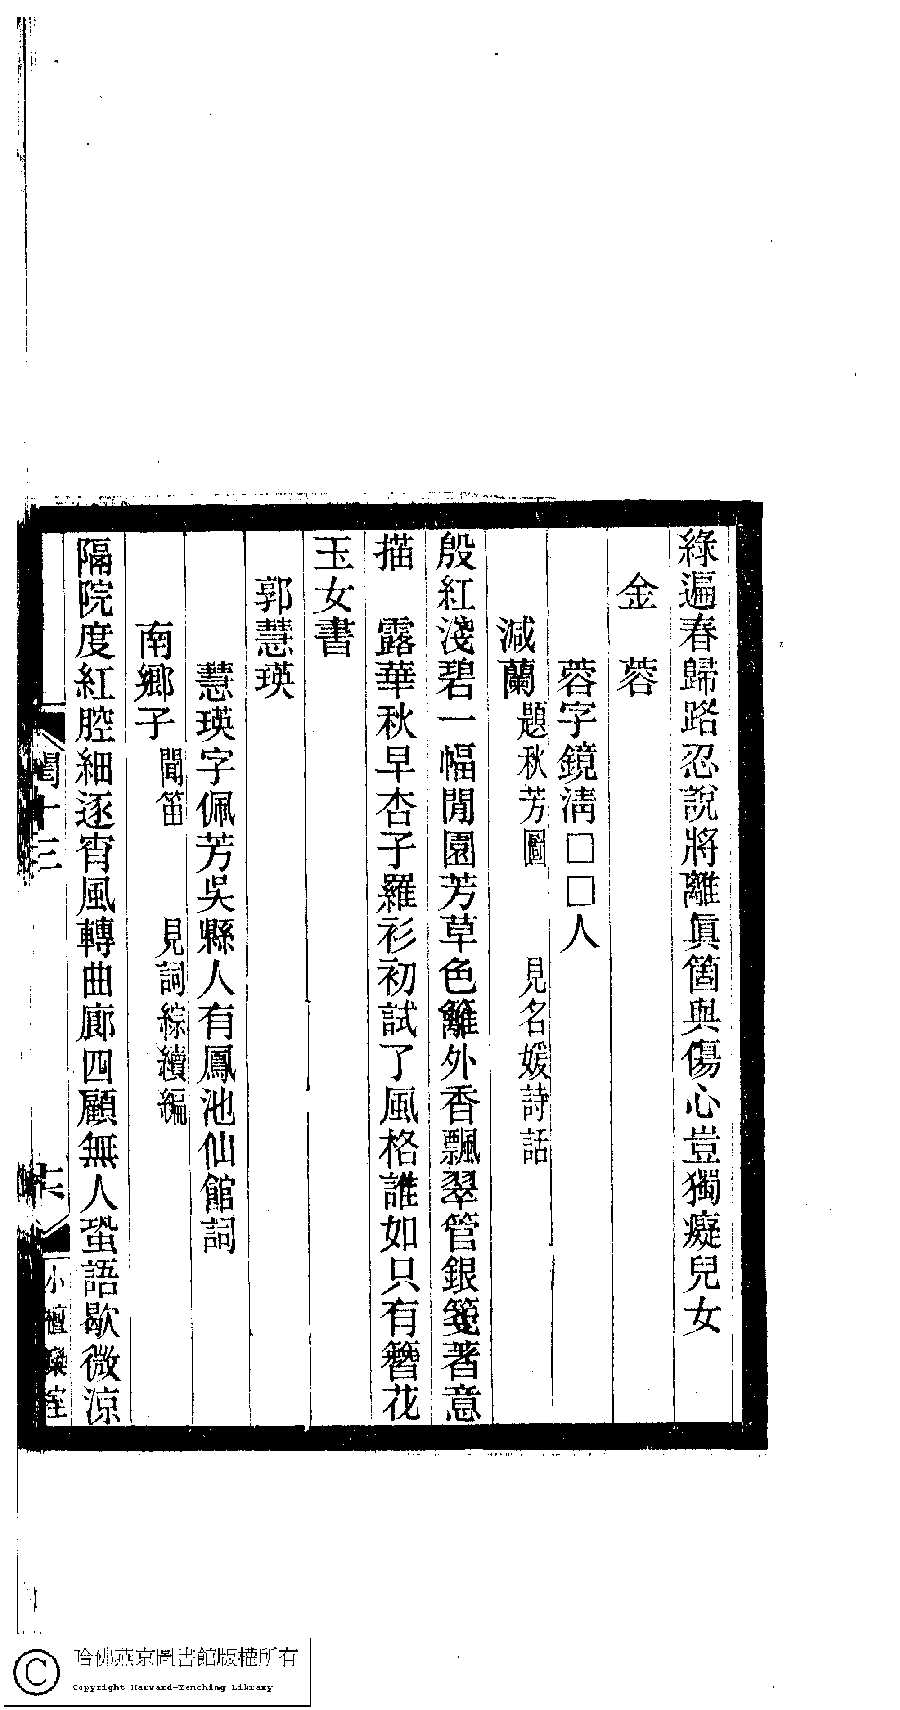 綠遍春歸路忍說將離眞箇與傷心豈獨癡兒女
金　蓉
蓉字鏡淸□□人
減蘭題秋芳圖　見名媛詩話
殷紅淺碧一幅閒園芳草色籬外香飄翠管銀箋著意
描　露華秋早杏子羅衫初試了風格誰如只有簪花
玉女書
郭慧瑛
慧瑛字佩芳吳縣人有鳳池仙館詞
南鄉子聞笛　見詞綜續編
隔院度紅腔細逐宵風轉曲廊四顧無人蛩語歇微涼
閨十三
小檀欒室
哈佛燕京圖書館版權所有
Copyright Harvard-Yenching Library